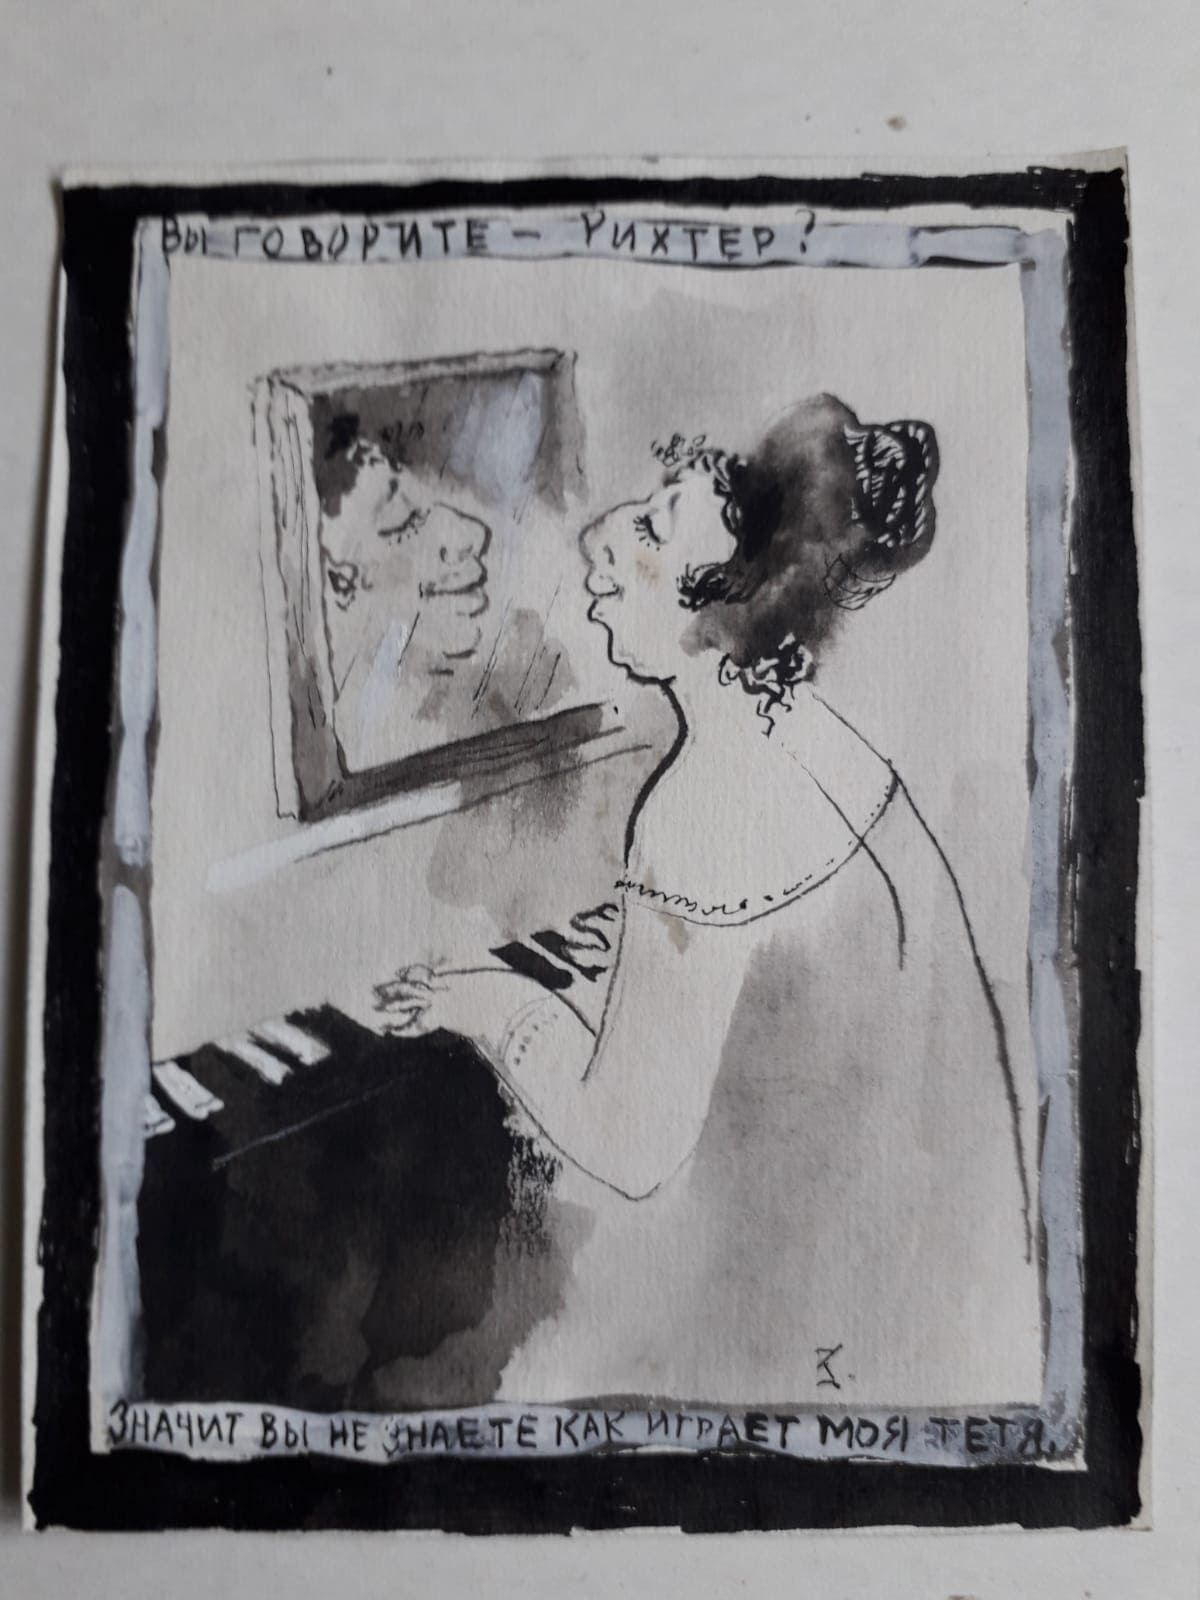 ВЫ ГОВОРИТЕ - РИХТЕР?
ЗНАЧИТ ВЫ НЕ ЗНАЕТЕ КАК ИГРАЕТ МОЯ ТЕТЯ.